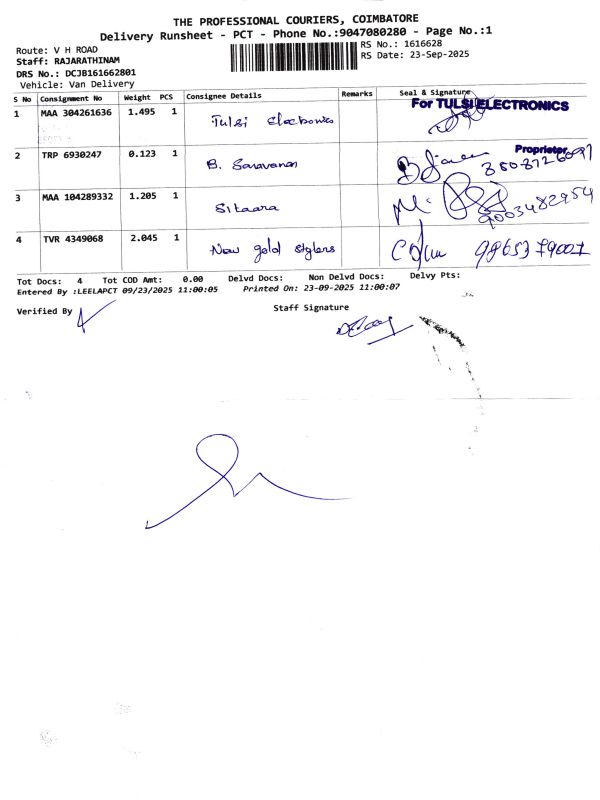 THE PROFESSIONAL COURIERS, COIMBATORE
Delivery Runsheet - PCT - Phone No.:9047080280 - Page No.:1
Route: V H ROAD
RS No.: 1616628
Staff: RAJARATHINAM
RS Date: 23-Sep-2025
DRS No.: DCJB161662801
Vehicle: Van Delivery
S No Consignment No Weight PCS Consignee Details Remarks Seal & Signature
For TULSI ELECTRONICS
1 MAA 304261636 1.495 1 Tulsi Electronics
Proprietor
2 TRP 6930247 0.123 1 B. Saravanan
3 MAA 104289332 1.205 1 Sitaara 9003482954
4 TVR 4349068 2.045 1 New gold stylers 9865379007
Tot Docs: 4 Tot COD Amt: 0.00 Delvd Docs: Non Delvd Docs: Delvy Pts:
Entered By :LEELAPCT 09/23/2025 11:00:05 Printed On: 23-09-2025 11:00:07
Verified By
Staff Signature